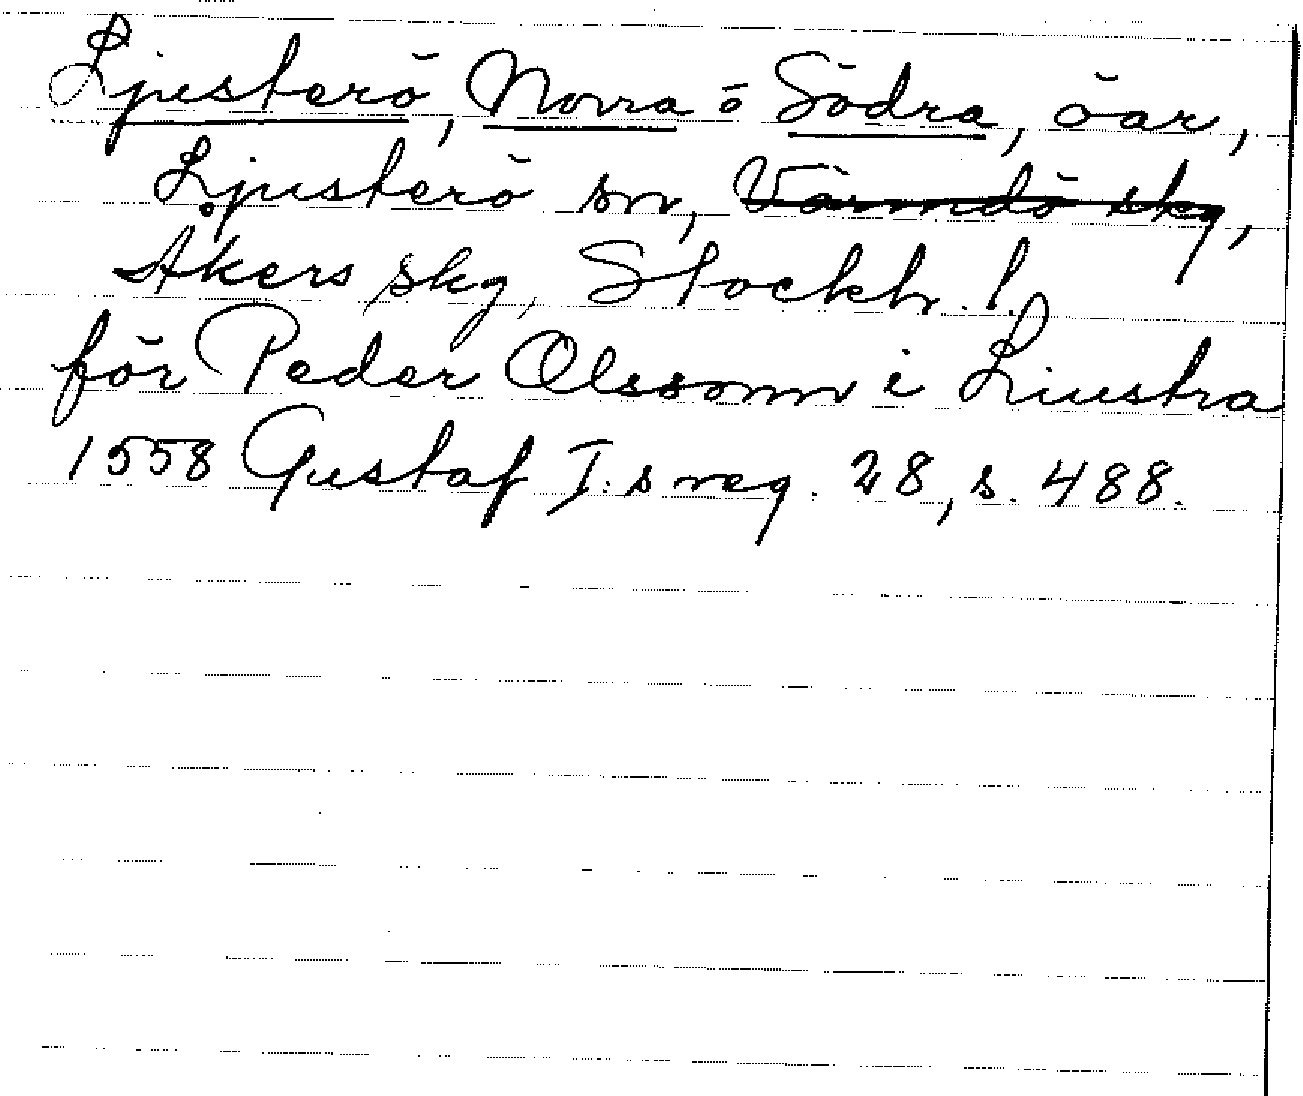 Ljusterö, Norra o Södra, öar,
Ljusterö sn, Värmdö skg,
Åkers skg, Stockh. l.
för Peder Olssonn i Liustra
1558 Gustaf I:s reg. 28, s. 488.